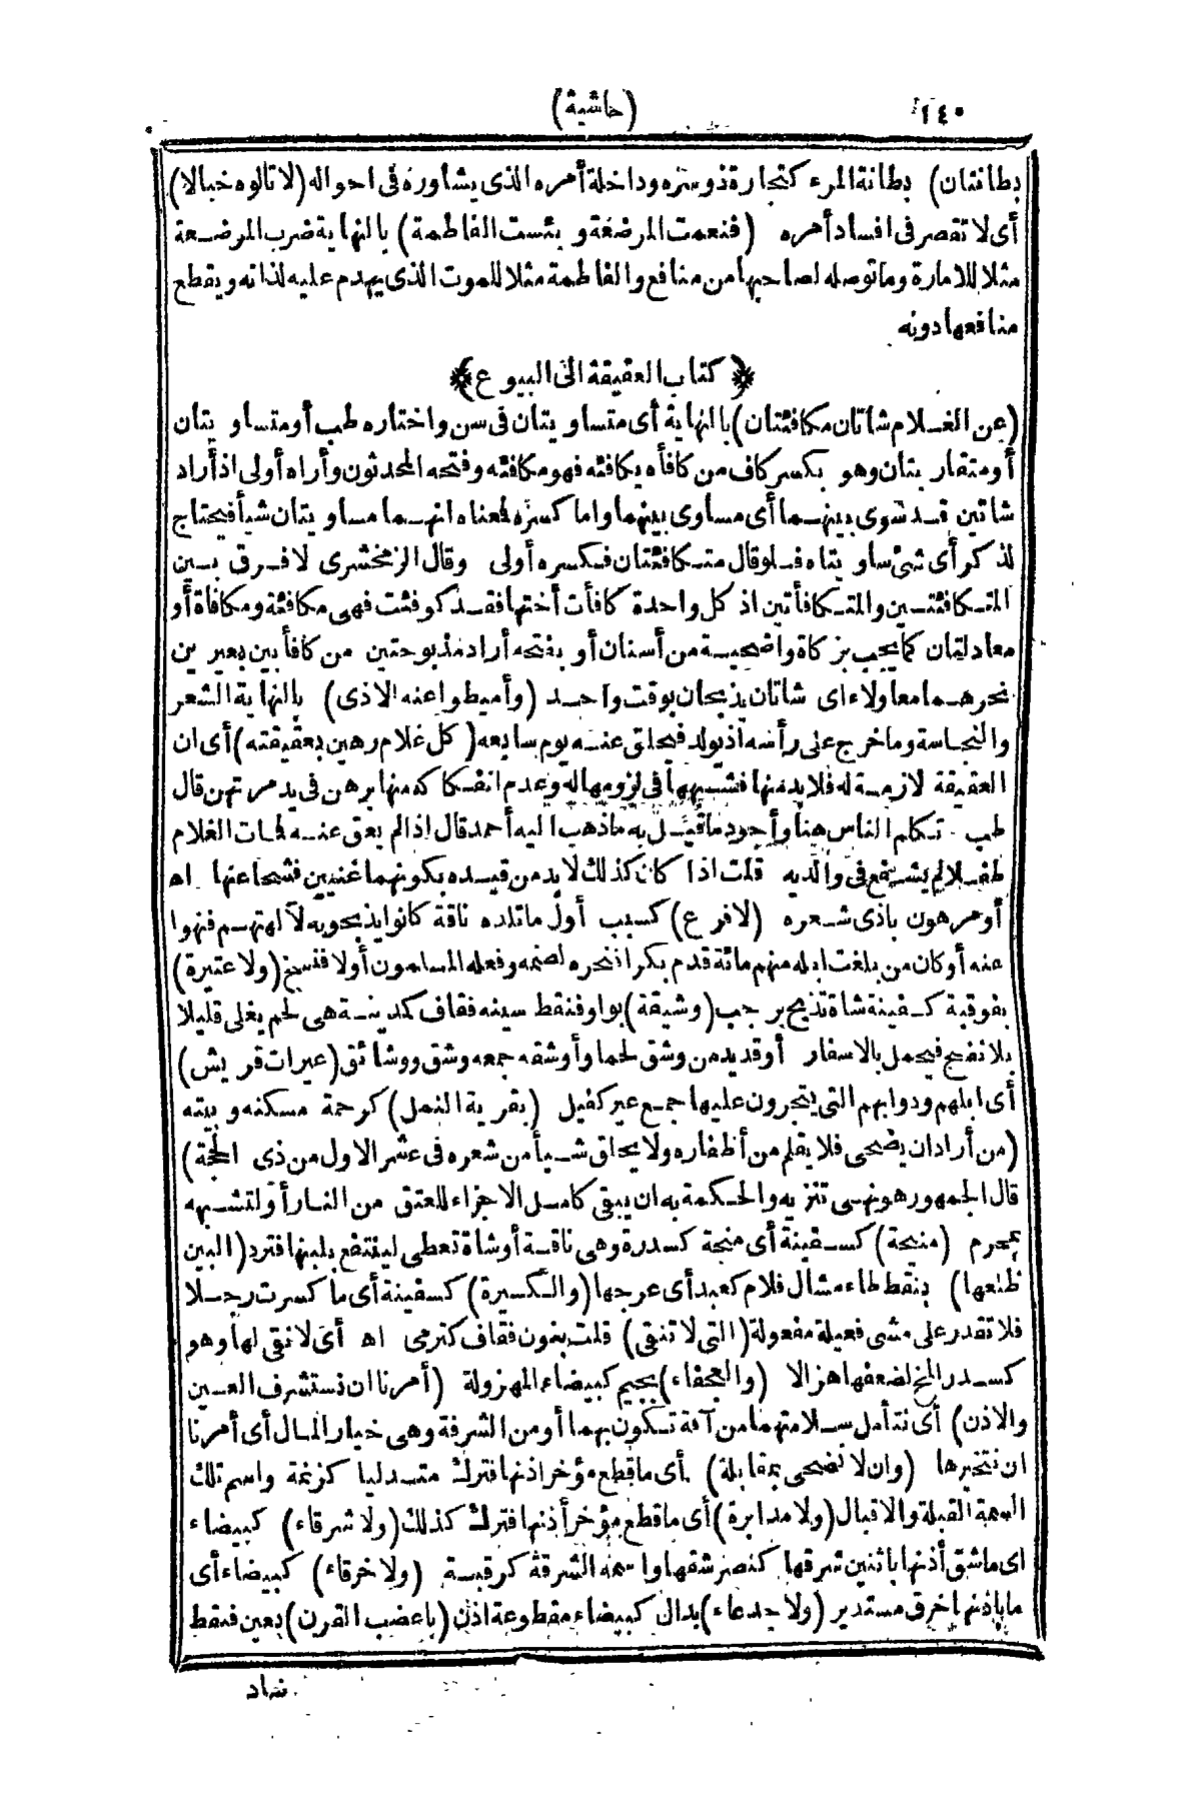 ١٤٠
(حاشية)
بطانتان) بطانة المرء كتجارة ذو سره وداخلة أمره الذى يشاوره فى احواله (لا تالوه خبالا)
أى لا تقصر فى افساد أمره (فنعمت المرضعة و بئست الفاطمة) بالنهاية ضرب المرضعة
مثلا للامارة وما توصله لصاحبها من منافع والفاطمة مثلا للموت الذى يهدم عليه لذاته ويقطع
منافعها دونه
﴿كتاب العقيقة الى البيوع﴾
(عن الغلام شاتان مكافئتان) بالنهاية أى متساويتان فى سن واختاره طب أو متساويتان
أو متقاربتان وهو بكسر كاف من كافأه يكافئه فهو مكافئه وفتحه المحدثون وأراه أولى اذ أراد
شاتين قد سوى بينهما أى مساوى بينهما واما كسره فمعناه انهما مساويتان شيأ فيحتاج
لذكر أى شئ ساويتاه فلو قال متكافئتان فكسره أولى وقال الزمخشرى لا فرق بين
المتكافئتين والمتكافأتين اذ كل واحدة كافأت أختها فقد كوفئت فهى مكافئة ومكافأة أو
معادلتان كما يجب بزكاة واضحية من أسنان أو بفتحه أراد مذبوحتين من كافأ بين بعيرين
نحرهما معا ولاء اى شاتان يذبحان بوقت واحد (وأميطوا عنه الاذى) بالنهاية الشعر
والنجاسة وما خرج على رأسه اذ يولد فيحلق عنه يوم سابعه (كل غلام رهين بعقيقته) أى ان
العقيقة لازمة له فلا بد منها فشبهها فى لزومها له وعدم انفكاكه منها برهن فى يد مرتهن قال
طب تكلم الناس هنا وأجود ما قيل به ما ذهب اليه أحمد قال اذا لم يعق عنه فمات الغلام
طفلا لم يشفع فى والديه قلت اذا كان كذلك لا بد من قيده بكونهما غنيين فشحا عنها اه
أو مرهون باذى شعره (لا فرع) كسبب أول ما تلده ناقة كانوا يذبحوبه لآلهتهم فنهوا
عنه أو كان من بلغت ابله منهم مائة قدم بكرا فنحره لصنمه وفعله المسلمون أولا فنسخ (ولا عتيرة)
بفوقية كسفينة شاة تذبح برجب (وشيقة) بواو فنقط سينه فقاف كمدينة هى لحم يغلى قليلا
بلا نضج فيحمل بالاسفار أو قديد من وشق لحما وأوشقه جمعه وشق ووشائق (عيرات قريش)
أى ابلهم ودوابهم التى يتجرون عليها جمع عير كفيل (بقرية النمل) كرحمة مسكنه وبيته
(من أراد ان يضحى فلا يقلم من أظفاره ولا يحلق شيأ من شعره فى عشر الاول من ذى الحجة)
قال الجمهور هو نهى تنزيه والحكمة به ان يبقى كامل الاجزاء للعتق من النار أو لتشبهه
بمحرم (منيحة) كسفينة أى منحة كسدرة وهى ناقة أو شاة تعطى لينتفع بلبنها فترد (البين
ظلعها) بنقط طاء مشال فلام كعبد أى عرجها (والكسيرة) كسفينة أى ما كسرت رجلا
فلا تقدر على مشى فعيلة مفعولة (التى لا تنقى) قلت بنون فقاف كترمى اه أى لا نقى لها وهو
كسدر المخ لضعفها هزالا (والعجفاء) بجيم كبيضاء المهزولة (أمرنا ان نستشرف العين
والاذن) أى نتأمل سلامتهما من آفة تكون بهما أو من الشرفة وهى خيار المال أى أمرنا
ان نتخيرها (وان لا نضحى بمقابلة) أى ما قطع مؤخر اذنها فترك متدليا كزنمة واسم تلك
السمة القبلة والاقبال (ولا مدابرة) أى ما قطع مؤخر أذنها فترك كذلك (ولا شرقاء) كبيضاء
اى ما شق أذنها باثنين شرقها كنصر شقها واسمه الشرقة كرقبة (ولا خرقاء) كبيضاء أى
ما باذنها خرق مستدير (ولا جدعاء) بدال كبيضاء مقطوعة اذن (باعضب القرن) بعين فنقط